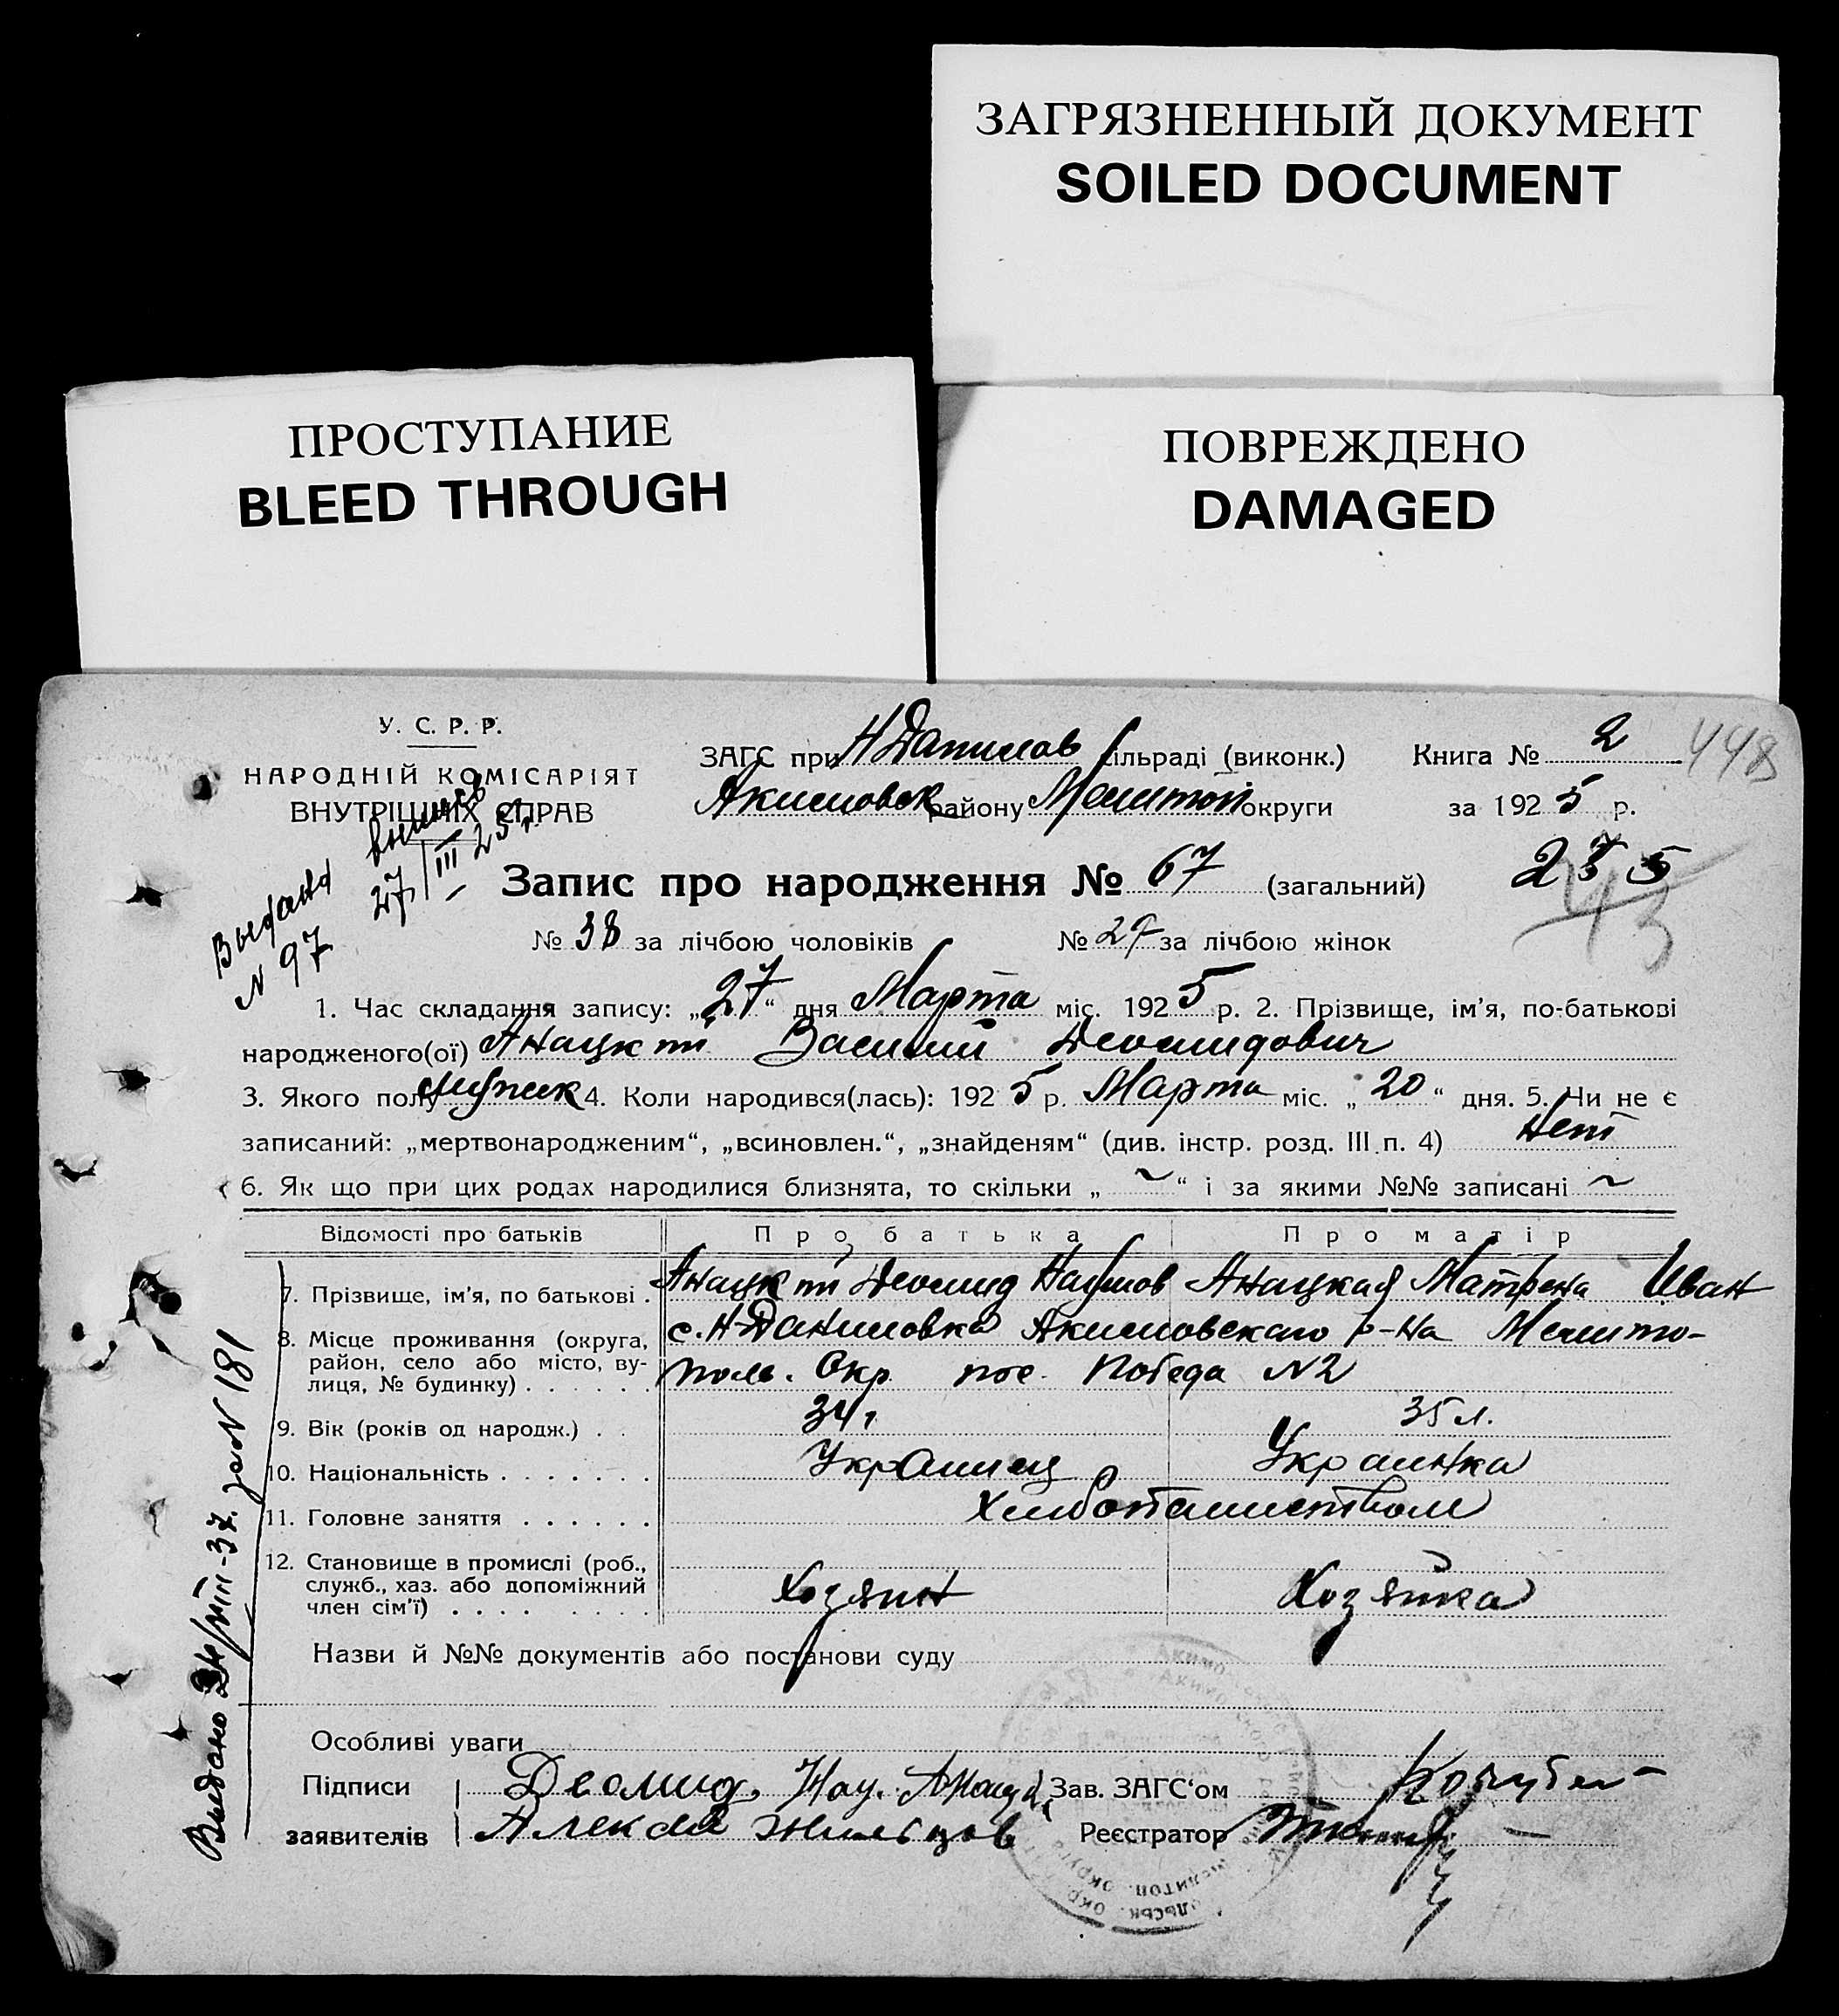 ЗАГРЯЗНЕННЫЙ ДОКУМЕНТ
SOILED DOCUMENT
ПРОСТУПАНИЕ
BLEED THROUGH
ПОВРЕЖДЕНО
DAMAGED
У. С. Р. Р.
НАРОДНІЙ КОМІСАРІЯТ
ВНУТРІШНІХ СПРАВ
ЗАГС при Н Данилов сільраді (виконк.) Книга № 2
448
Акимовск району Мелитоп округи за 1925 р.
Выдана выпись
N 97 27/III 25 г.
Запис про народження № 67 (загальний)
43
№ 38 за лічбою чоловіків № 29 за лічбою жінок
1. Час складання запису: „27“ дня Марта міс. 1925 р. 2. Прізвище, ім'я, по-батькові
народженого(ої) Анацкий Василий Деомидович
3. Якого полу мужск 4. Коли народився(лась): 1925 р. Марта міс. „20“ дня. 5. Чи не є
записаний: „мертвонародженим“, „всиновлен.“, „знайденям“ (див. інстр. розд. III п. 4) Нет
6. Як що при цих родах народилися близнята, то скільки „ ~ “ і за якими №№ записані ~
Відомості про батьків Про батька Про матір
7. Прізвище, ім'я, по батькові . Анацкий Деомид Наумов Анацкая Матрена Иван
8. Місце проживання (округа, район, село або місто, вулиця, № будинку) с. Н-Даниловка Акимовского р-на Мелито-
поль. Окр. пос. Победа N2
9. Вік (років од народж.) . . 34 г. 35 л.
10. Національність . . . . . . . Украинец Украинка
11. Головне заняття . . . . . . Хлебопашеством
12. Становище в промислі (роб.,
служб., хаз. або допоміжний
член сім'ї) . . . . Хозяин Хозяйка
Назви й №№ документів або постанови суду
Особливі уваги
Підписи Деомид Нау. Анацк Зав. ЗАГС'ом
заявителів Алексей Жильцов Реєстратор
Выдано VIII-37. за N 181